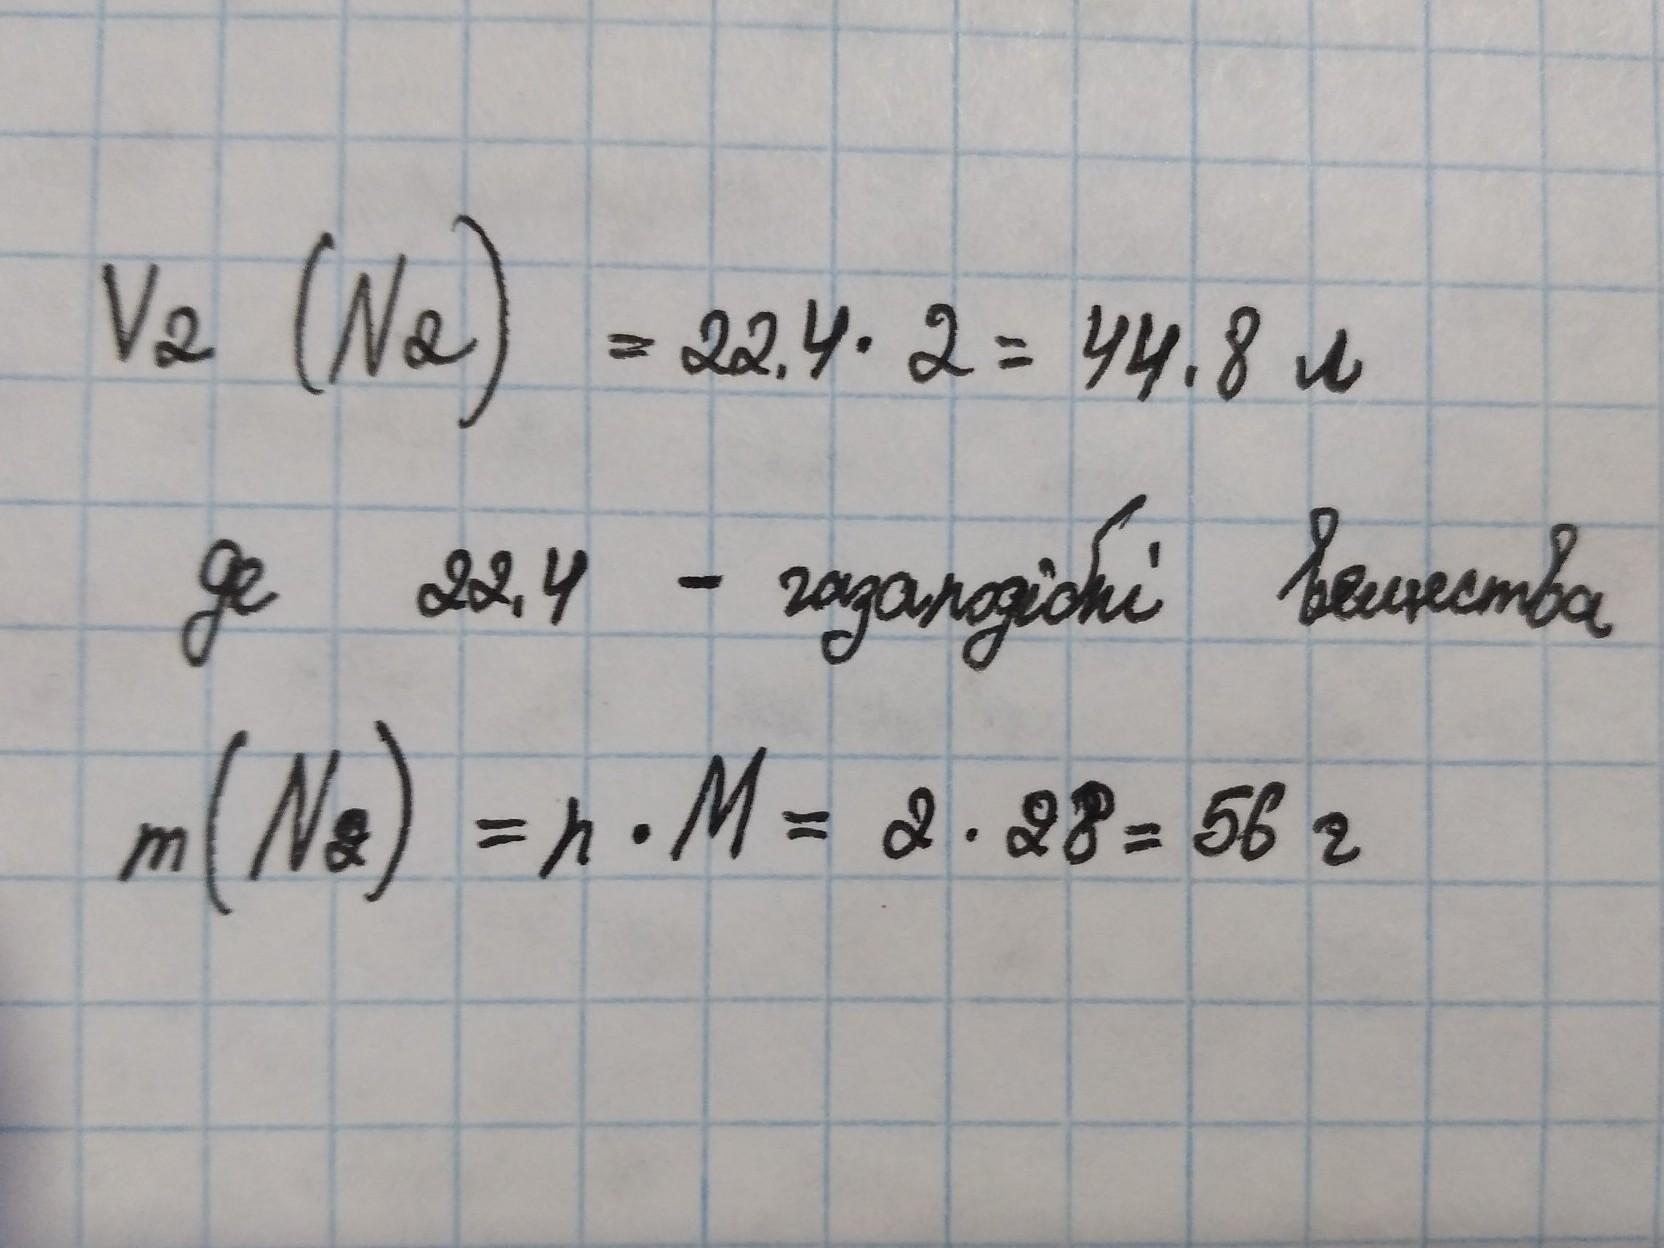 V2 (N2) = 22.4 · 2 = 44.8 л
де 22.4 - газаподібні вещества
m(N2) = n · M = 2 · 28 = 56 г